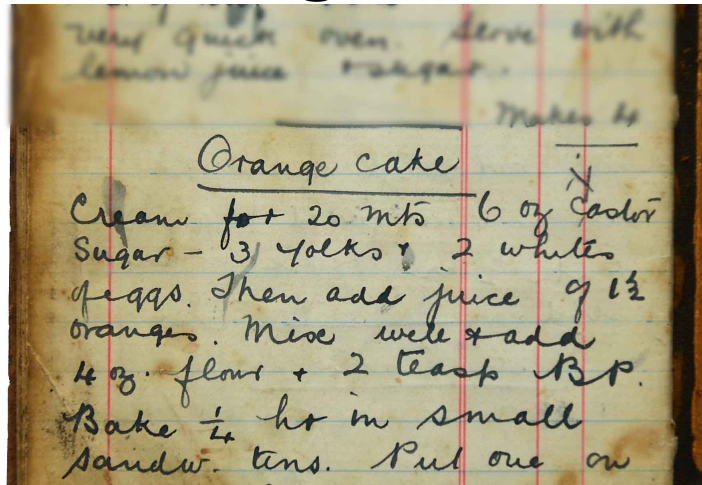 very quick oven. Serve with
lemon juice + sugar.
Makes 4
Orange cake
Cream for 20 mts 6 oz Castor
Sugar - 3 yolks + 2 whites
of eggs. Then add juice of 1½
oranges. Mix well + add
4 oz. flour + 2 teasp B.P.
Bake ¼ hr in small
sandw. tins. Put one on